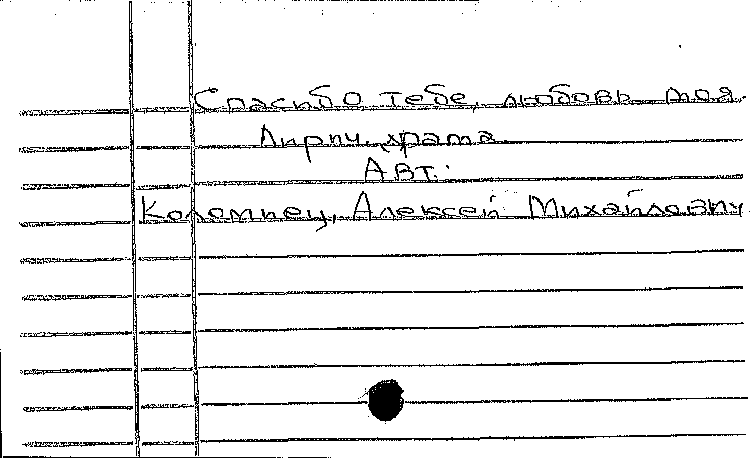 Спасибо тебе, любовь моя.
Лирич. храма
Авт.:
Коломиец, Алексей Михайлович